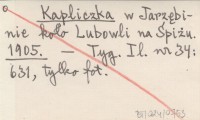 Kapliczka w Jarzębi-
nie koło Lubowli na Spiżu.
1905. — Tyg. Il. nr 34:
631, tylko fot.